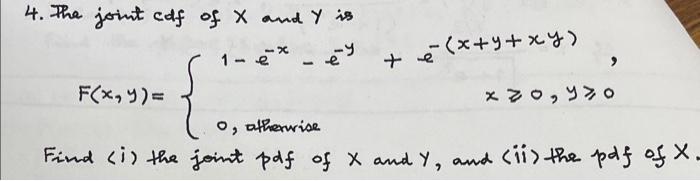 4. The joint cdf of X and Y is
F(x, y) = { 1 - e^-x - e^-y + e^-(x+y+xy) ,
x ⩾ 0, y ⩾ 0
0, otherwise
Find (i) the joint pdf of X and Y, and (ii) the pdf of X.